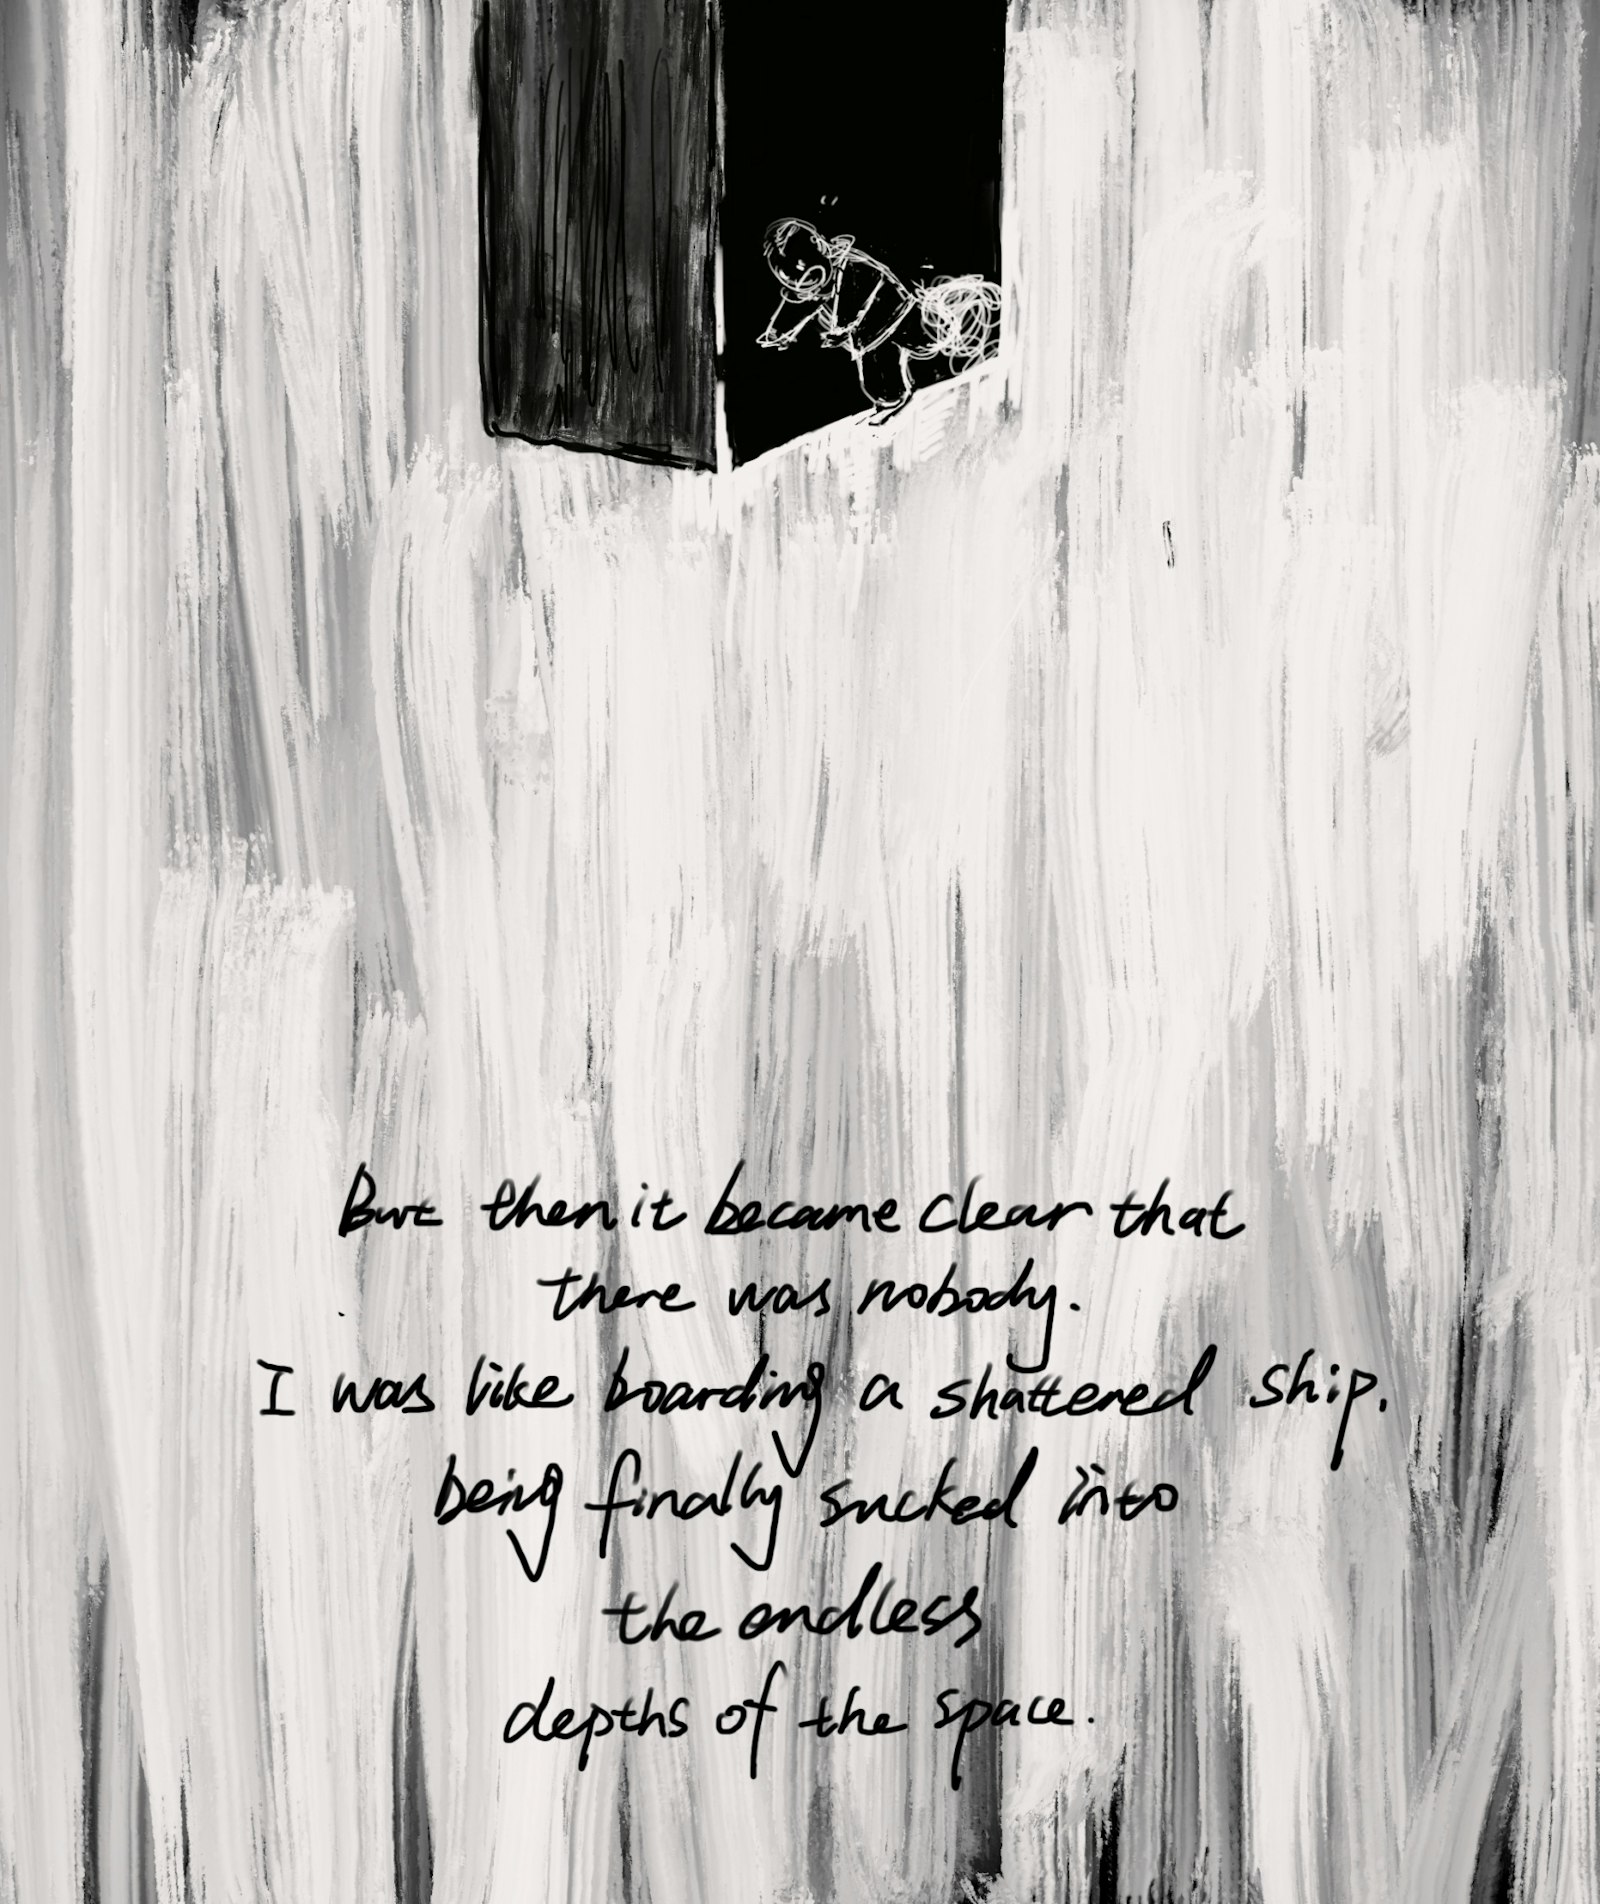 But then it became clear that
there was nobody.
I was like boarding a shattered ship.
being finally sucked into
the endless
depths of the space.